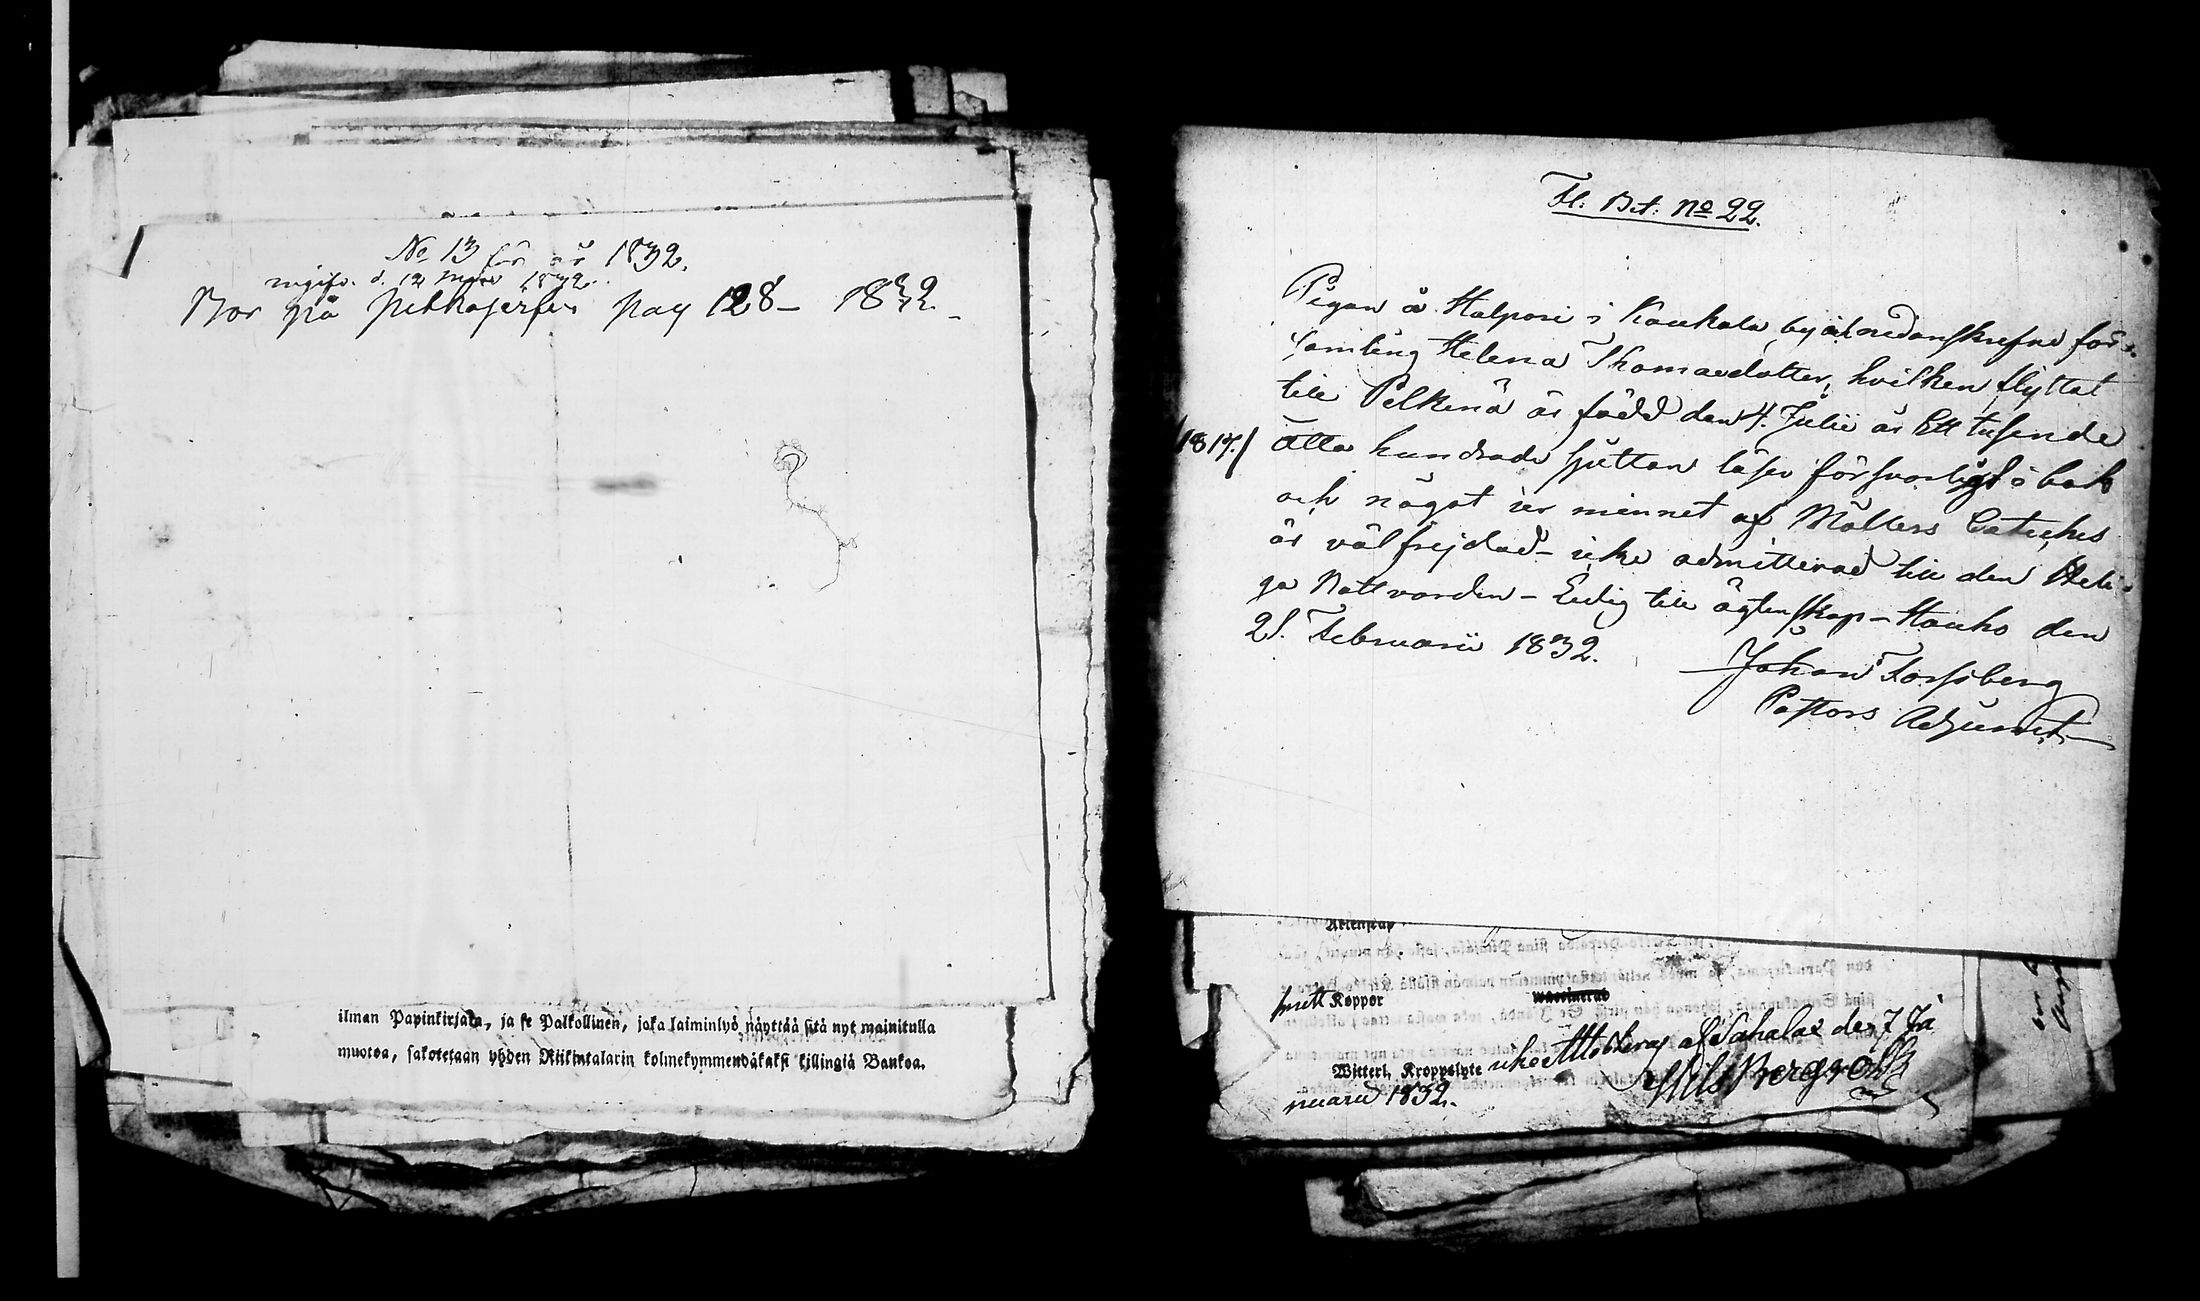 No 13 för år 1832.
ingifv. d. 12 Mars 1832.
Bor på Pitkäjerfvi pag 128 - 1832 -
ilman Papinkirjata, ja se Palkollinen, joka laiminlyö näyttää sitä nyt mainitulla
muotoa, sakotetaan yhden Riikintalarin kolmekymmendäkaksi killingiä Bankoa.
Fl. Bet: No 22.
Pigan å Halpori i Kaukala by af nedanskrefne för-
samling Helena Thomasdotter, hvilken flyttat
till Pelkenä är född den 4. Julii år Ett tusende
/1817./ åtta hundrade sjuttan läser försvarligt i bok
och något ur minnet af Möllers Cateches
är välfrejdad - icke admitterad till den Heli-
ga Nattvarden - Ledig till ägtenskap - Hauho den
21. Februarii 1832.
Johan Forsberg
Pastors Adjunct
Attenstad
haft Koppor
vaccinerad
Witterl. Kroppslyte icke Attesteras af Sahalax de 7 Ja
nuarii 1832.
Nils Bergroth